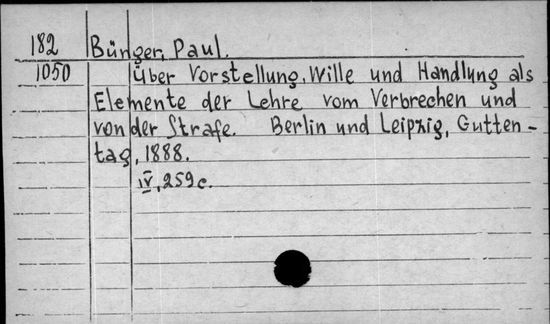 182 Bünger, Paul.
1050 Über Vorstellung, Wille und Handlung als
Elemente der Lehre vom Verbrechen und
von der Strafe. Berlin und Leipzig, Gutten-
tag, 1888.
IV, 259c.